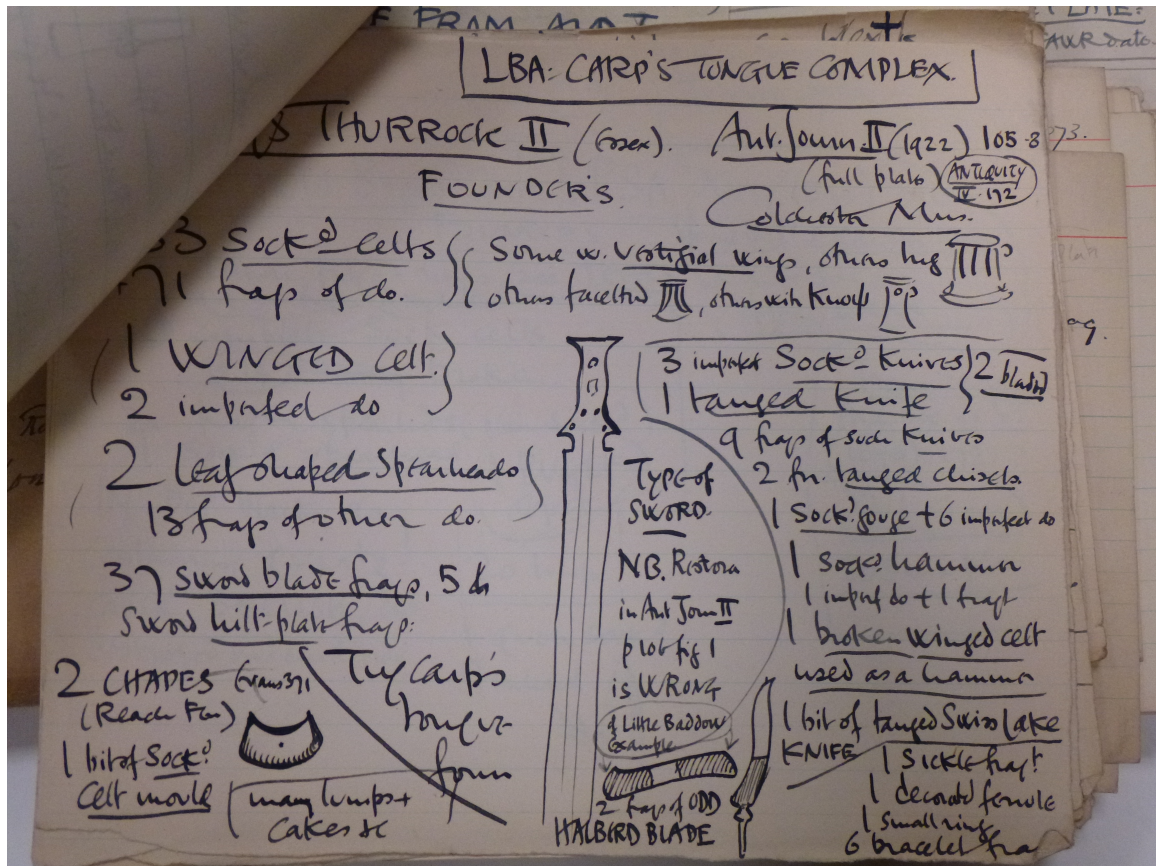 LBA: CARP'S TONGUE COMPLEX.
THURROCK II (Essex). Ant. Journ. II (1922) 105-8
(full plate) ANTIQUITY IV. 192
FOUNDER'S
Colchester Mus.
Sockd celts
71 frags of do.
Some w. vestigial wings, others
others facetted, others with Knobs
1 WINGED Celt.
2 imperfect do
2 leaf shaped Spearheads
13 frags of other do.
37 sword blade frags, 5 do
Sword hilt-plate frags.
2 CHAPES Evans 371
(Reach Fen)
1 bit of Sockd
Celt mould
many lumps +
Cakes &c
Carp's
tongue
form
TYPE of
SWORD
NB. Restorn
in Ant Journ II
plate fig 1
is WRONG
cf Little Baddow
Example
2 frags of ODD
HALBERD BLADE
3 imperfect Sockd Knives
1 tanged Knife
2 bladed
9 frags of such Knives
2 fr. tanged chisels.
1 Sockd gouge + 6 imperfect do
1 sockd hammer
1 imperf do + 1 fragt
1 broken winged celt
used as a hammer
1 bit of tanged Swiss Lake
KNIFE
1 Sickle fragt
1 decorated ferrule
1 small ring
6 bracelet fra
073.
AWR dato.